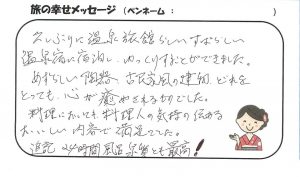 旅の幸せメッセージ (ペンネーム： )
久しぶりに温泉旅館らしいすばらしい
温泉宿に宿泊し、ゆっくりすることができました。
めずらしい陶器、古民家風の建物、どれを
とっても、心が癒やされるものでした。
料理においても料理人の気持の伝わる
おいしい内容で満足でした。
追記 24時間風呂 泉質とも最高!